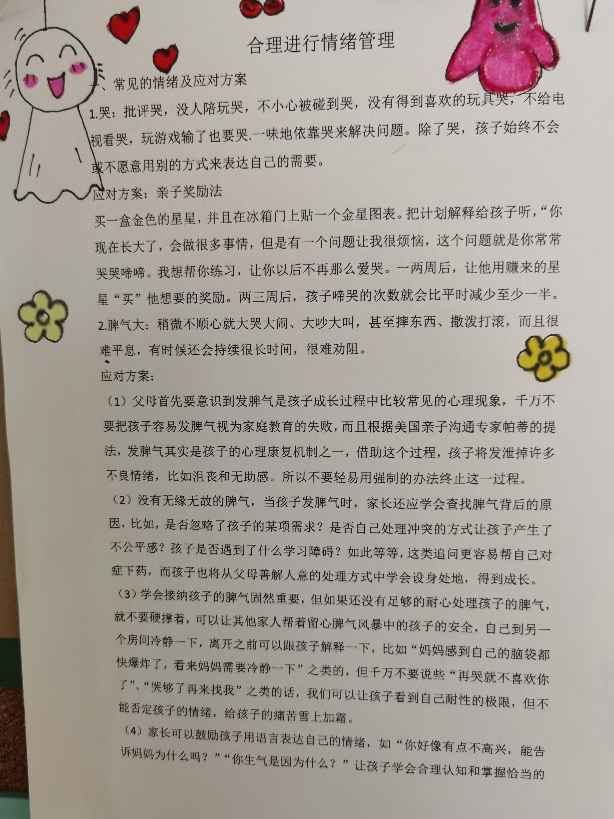 合理进行情绪管理
一、常见的情绪及应对方案
1.哭：批评哭，没人陪玩哭，不小心被碰到哭，没有得到喜欢的玩具哭，不给电
视看哭，玩游戏输了也要哭.一味地依靠哭来解决问题。除了哭，孩子始终不会
或不愿意用别的方式来表达自己的需要。
应对方案：亲子奖励法
买一盒金色的星星，并且在冰箱门上贴一个金星图表。把计划解释给孩子听，“你
现在长大了，会做很多事情，但是有一个问题让我很烦恼，这个问题就是你常常
哭哭啼啼。我想帮你练习，让你以后不再那么爱哭。一两周后，让他用赚来的星
星“买”他想要的奖励。两三周后，孩子啼哭的次数就会比平时减少至少一半。
2.脾气大：稍微不顺心就大哭大闹、大吵大叫，甚至摔东西、撒泼打滚，而且很
难平息，有时候还会持续很长时间，很难劝阻。
应对方案：
（1）父母首先要意识到发脾气是孩子成长过程中比较常见的心理现象，千万不
要把孩子容易发脾气视为家庭教育的失败，而且根据美国亲子沟通专家帕蒂的提
法，发脾气其实是孩子的心理康复机制之一，借助这个过程，孩子将发泄掉许多
不良情绪，比如沮丧和无助感。所以不要轻易用强制的办法终止这一过程。
（2）没有无缘无故的脾气，当孩子发脾气时，家长还应学会查找脾气背后的原
因，比如，是否忽略了孩子的某项需求？是否自己处理冲突的方式让孩子产生了
不公平感？孩子是否遇到了什么学习障碍？如此等等，这类追问更容易帮自己对
症下药，而孩子也将从父母善解人意的处理方式中学会设身处地，得到成长。
（3）学会接纳孩子的脾气固然重要，但如果还没有足够的耐心处理孩子的脾气，
就不要硬撑着，可以让其他家人帮着留心脾气风暴中的孩子的安全，自己到另一
个房间冷静一下，离开之前可以跟孩子解释一下，比如“妈妈感到自己的脑袋都
快爆炸了，看来妈妈需要冷静一下”之类的，但千万不要说些“再哭就不喜欢你
了”、“哭够了再来找我”之类的话，我们可以让孩子看到自己耐性的极限，但不
能否定孩子的情绪，给孩子的痛苦雪上加霜。
（4）家长可以鼓励孩子用语言表达自己的情绪，如“你好像有点不高兴，能告
诉妈妈为什么吗？”“你生气是因为什么？”让孩子学会合理认知和掌握恰当的